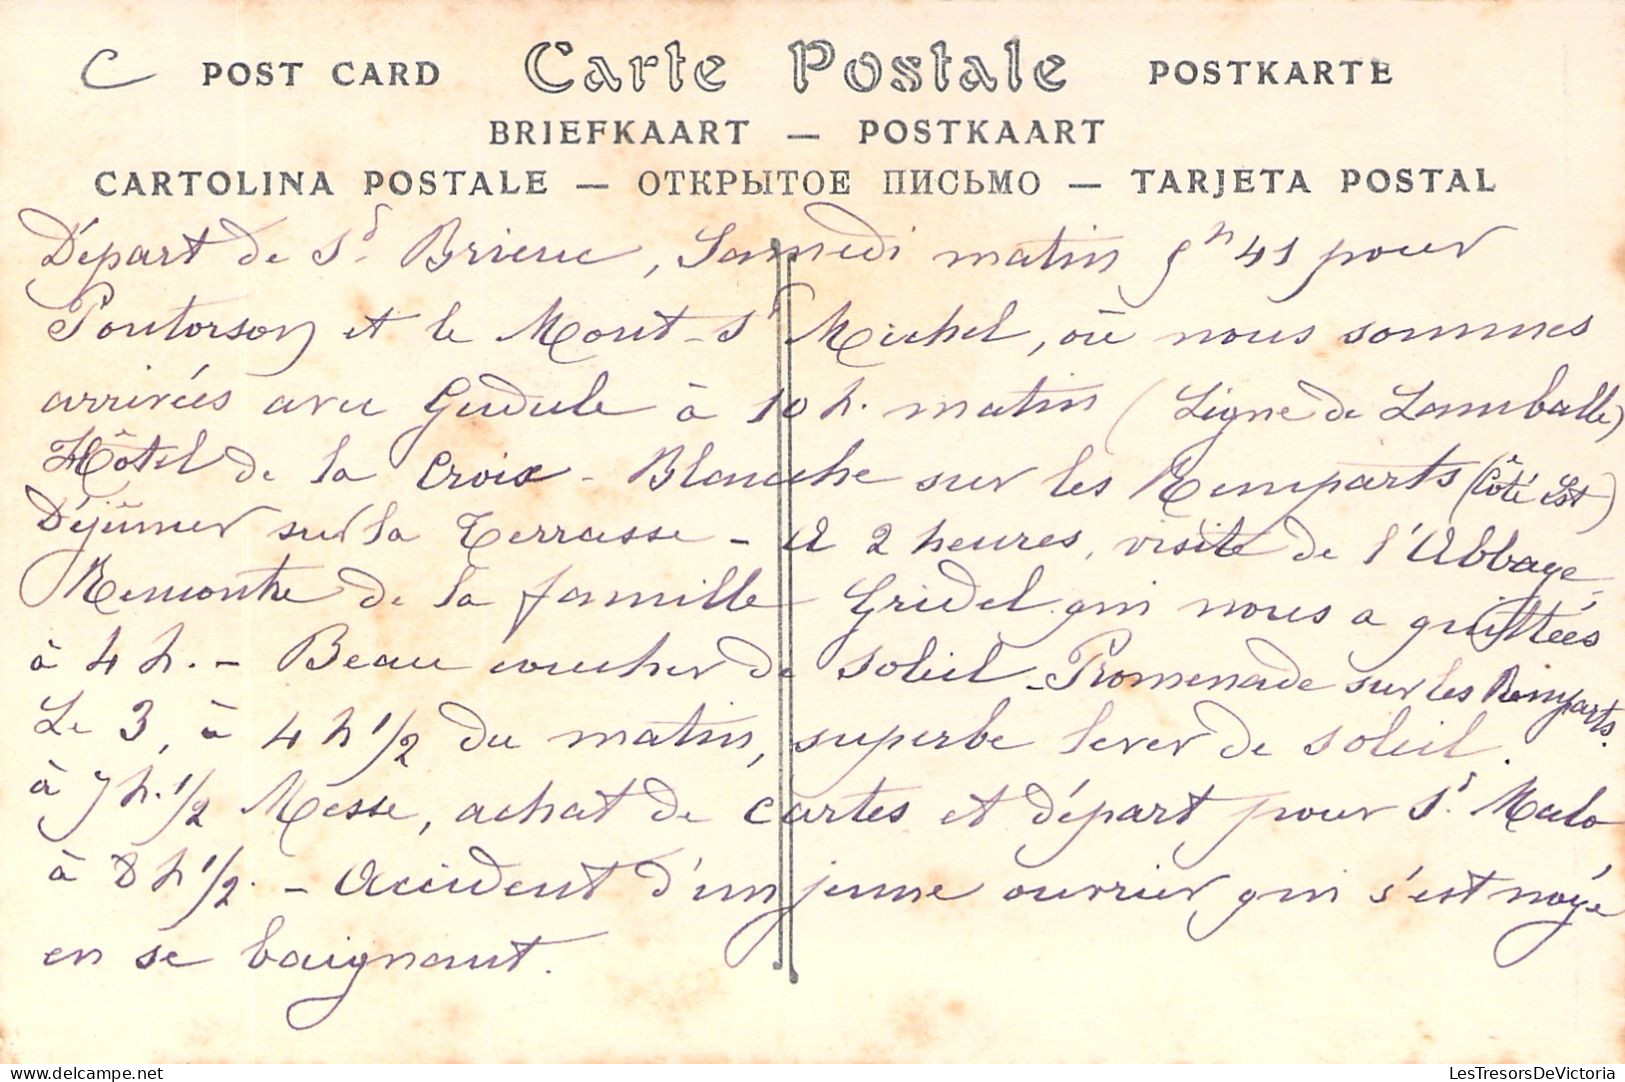 C POST CARD Carte Postale POSTKARTE
BRIEFKAART — POSTKAART
CARTOLINA POSTALE — ОТКРЫТОЕ ПИСЬМО — TARJETA POSTAL
Départ de St Brieuc, Samedi matin 5h 41 pour
Pontorson et le Mont-St Michel, où nous sommes
arrivées avec Gudule à 10 h. matin (Ligne de Lamballe)
Hôtel de la Croix-Blanche sur les Remparts (Côté Est)
Déjeûner sur la Terrasse - A 2 heures, visite de l'Abbaye -
Rencontre de la famille Gridel qui nous a quittées
à 4 h. - Beau coucher de soleil - Promenade sur les Remparts.
Le 3, à 4 h 1/2 du matin, superbe lever de soleil.
à 7 h. 1/2 Messe, achat de cartes et départ pour St Malo
à 8 h 1/2. - Accident d'un jeune ouvrier qui s'est noyé
en se baignant.
LesTresorsDeVictoria
delcampe.net